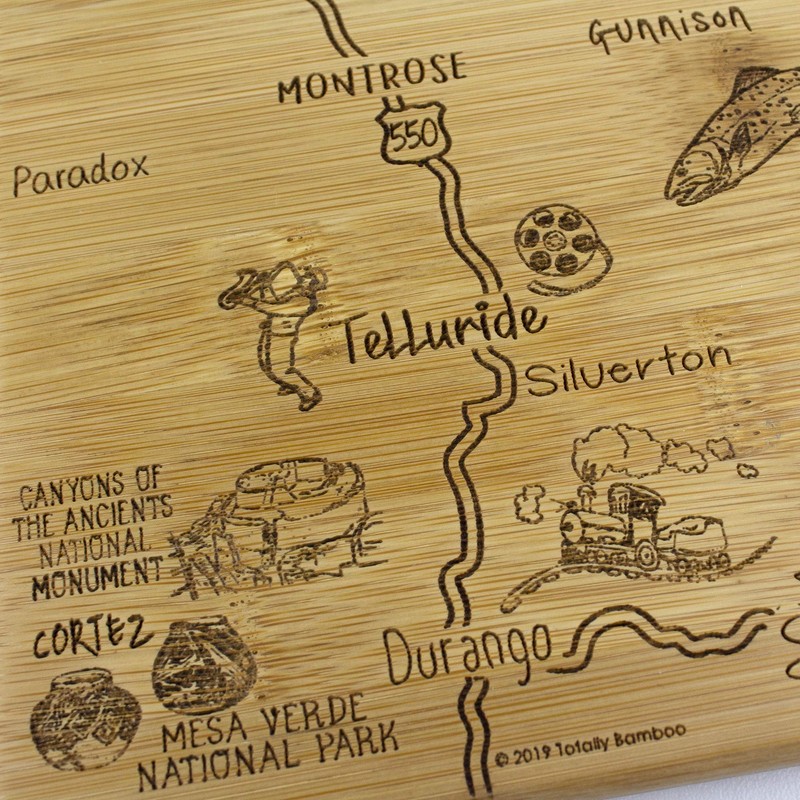 Gunnison
MONTROSE
550
Paradox
Telluride
Silverton
CANYONS OF
THE ANCIENTS
NATIONAL
MONUMENT
CORTEZ
Durango
MESA VERDE
NATIONAL PARK
© 2019 Totally Bamboo